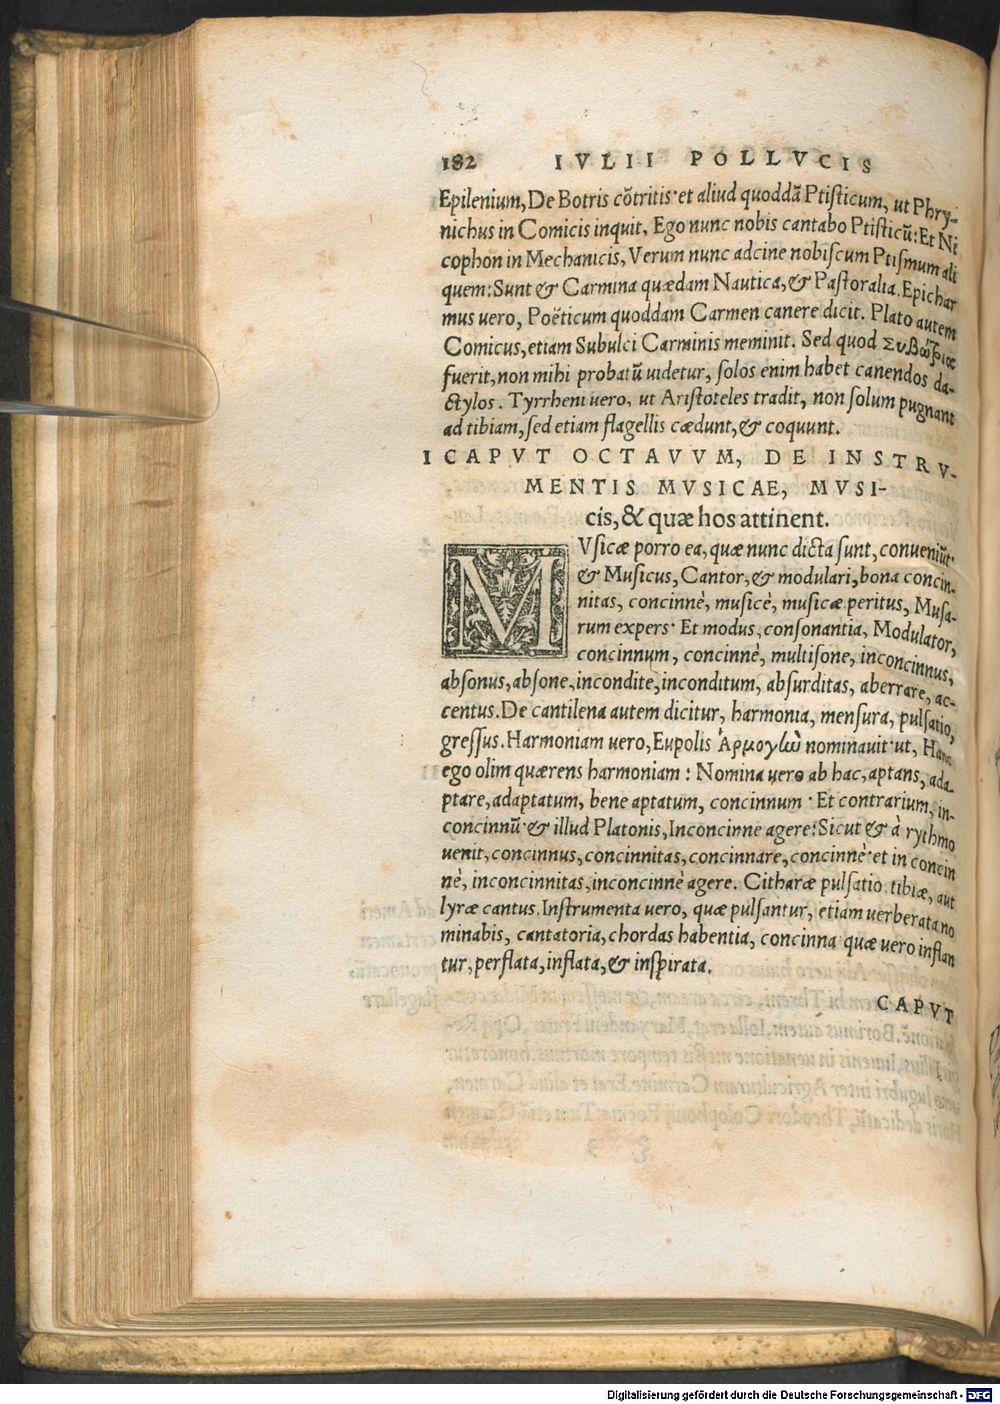 182 IVLII POLLVCIS
Epilenium, De Botris cõtritis·et aliud quoddã Ptisticum, ut Phry-
nichus in Comicis inquit, Ego nunc nobis cantabo Ptisticũ: Et Ni
cophon in Mechanicis, Verum nunc adcine nobiscum Ptismum ali
quem: Sunt & Carmina quædam Nautica, & Pastoralia. Epichar
mus uero, Poëticum quoddam Carmen canere dicit. Plato autem
Comicus, etiam Subulci Carminis meminit. Sed quod
fuerit, non mihi probatũ uidetur, solos enim habet canendos da-
ctylos. Tyrrheni uero, ut Aristoteles tradit, non solum pugnant
ad tibiam, sed etiam flagellis cædunt, & coquunt.
I CAPVT OCTAVVM, DE INSTRV-
MENTIS MVSICAE, MVSI-
cis, & quæ hos attinent.
MVsicæ porro ea, quæ nunc dicta sunt, conueniũt·
& Musicus, Cantor, & modulari, bona concin-
nitas, concinnè, musicè, musicæ peritus, Musa-
rum expers· Et modus, consonantia, Modulator,
concinnum, concinnè, multisone, inconcinnus,
absonus, absone, incondite, inconditum, absurditas, aberrare, ac-
centus. De cantilena autem dicitur, harmonia, mensura, pulsatio,
gressus. Harmoniam uero, Eupolis Ἁρμογὼ nominauit·ut, Hanc
ego olim quærens harmoniam: Nomina uero ab hac, aptans, ada-
ptare, adaptatum, bene aptatum, concinnum· Et contrarium, in-
concinnũ·& illud Platonis, Inconcinne agere: Sicut & à rythmo
uenit, concinnus, concinnitas, concinnare, concinnè·et in concin
nè, inconcinnitas, inconcinnè agere. Citharæ pulsatio tibiæ, aut
lyræ cantus. Instrumenta uero, quæ pulsantur, etiam uerberata no
minabis, cantatoria, chordas habentia, concinna quæ uero inflan
tur, perflata, inflata, & inspirata.
CAPVT
Digitalisierung gefördert durch die Deutsche Forschungsgemeinschaft - DFG